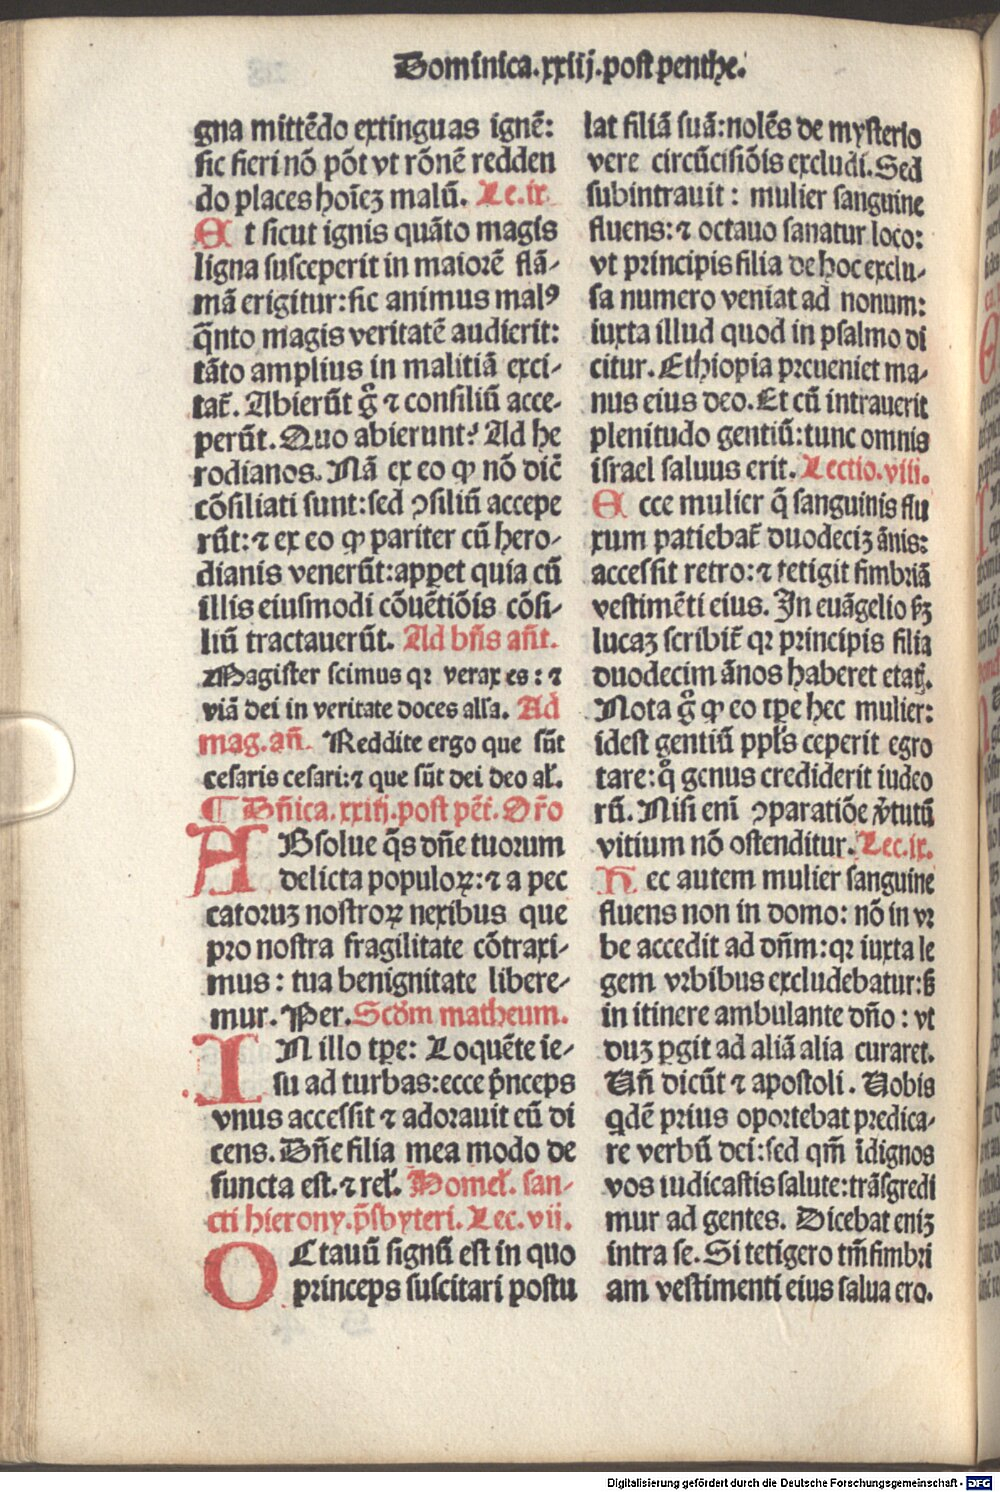 Dominica.xxiij.post penthe.
gna mittēdo extinguas ignē:
sic fieri nō pōt vt rōnē redden
do places hoīeꝫ malū. Le.ix
Et sicut ignis quāto magis
ligna susceperit in maiorē flā-
mā erigitur:sic animus malꝰ
q̄nto magis veritatē audierit:
tāto amplius in malitiā exci-
tat̄. Abierūt g̊ ⁊ consiliū acce-
perūt. Quo abierunt? Ad he
rodianos. Nā ex eo ꝙ nō dic̄
cōsiliati sunt:sed ꝯsiliū accepe
rūt:⁊ ex eo ꝙ pariter cū hero-
dianis venerūt:apꝑet quia cū
illis eiusmodi cōuētiōis cōsi-
liū tractauerūt. Ad bn̄s an̄t.
Magister scimus qꝛ verax es : ⁊
viā dei in veritate doces all'a. Ad
mag.an̄. Reddite ergo que sūt
cesaris cesari:⁊ que sūt dei deo al'.
¶ Dn̄ica.xxiij.post pēt. Or̄o
ABsolue q̄s dn̄e tuorum
delicta populoꝝ:⁊ a pec
catoruꝫ nostroꝝ nexibus que
pro nostra fragilitate cōtraxi-
mus : tua benignitate libere-
mur. Per. Scd̄m matheum.
IN illo tꝑe: Loquēte ie-
su ad turbas:ecce p̄nceps
vnus accessit ⁊ adorauit eū di
cens. Dn̄e filia mea modo de
functa est.⁊ rel'. Homel'. san-
cti hierony.p̄sbyteri. Lec.vii.
OCtauū signū est in quo
princeps suscitari postu
lat filiā suā:nolēs de mysterio
vere circūcisiōis excludi. Sed
subintrauit : mulier sanguine
fluens:⁊ octauo sanatur loco:
vt principis filia de hoc exclu-
sa numero veniat ad nonum:
iuxta illud quod in psalmo di
citur. Ethiopia preueniet ma-
nus eius deo. Et cū intrauerit
plenitudo gentiū:tunc omnis
israel saluus erit. Lectio.viii.
Ecce mulier q̄ sanguinis flu
xum patiebat̄ duodeciꝫ ānis:
accessit retro:⁊ tetigit fimbriā
vestimēti eius. In euāgelio ẜꝫ
lucaꝫ scribit̄ qꝛ principis filia
duodecim ānos haberet etat̄.
Nota g̊ ꝙ eo tꝑe hec mulier:
idest gentiū ppl's ceperit egro
tare:q̊ genus crediderit iudeo
rū. Nisi eni ꝯparatiōe v̓tutū
vitium nō ostenditur. Lec.ix.
Hec autem mulier sanguine
fluens non in domo: nō in vr
be accedit ad dn̄m:qꝛ iuxta le
gem vrbibus excludebatur:ẜ
in itinere ambulante dn̄o : vt
duꝫ ꝑgit ad aliā alia curaret.
Un̄ dicūt ⁊ apostoli. Uobis
qdē prius oportebat predica-
re verbū dei:sed qm̄ īdignos
vos iudicastis salute:trāsgredi
mur ad gentes. Dicebat eniꝫ
intra se. Si tetigero tm̄ fimbri
am vestimenti eius salua ero.
Digitalisierung gefördert durch die Deutsche Forschungsgemeinschaft - DFG